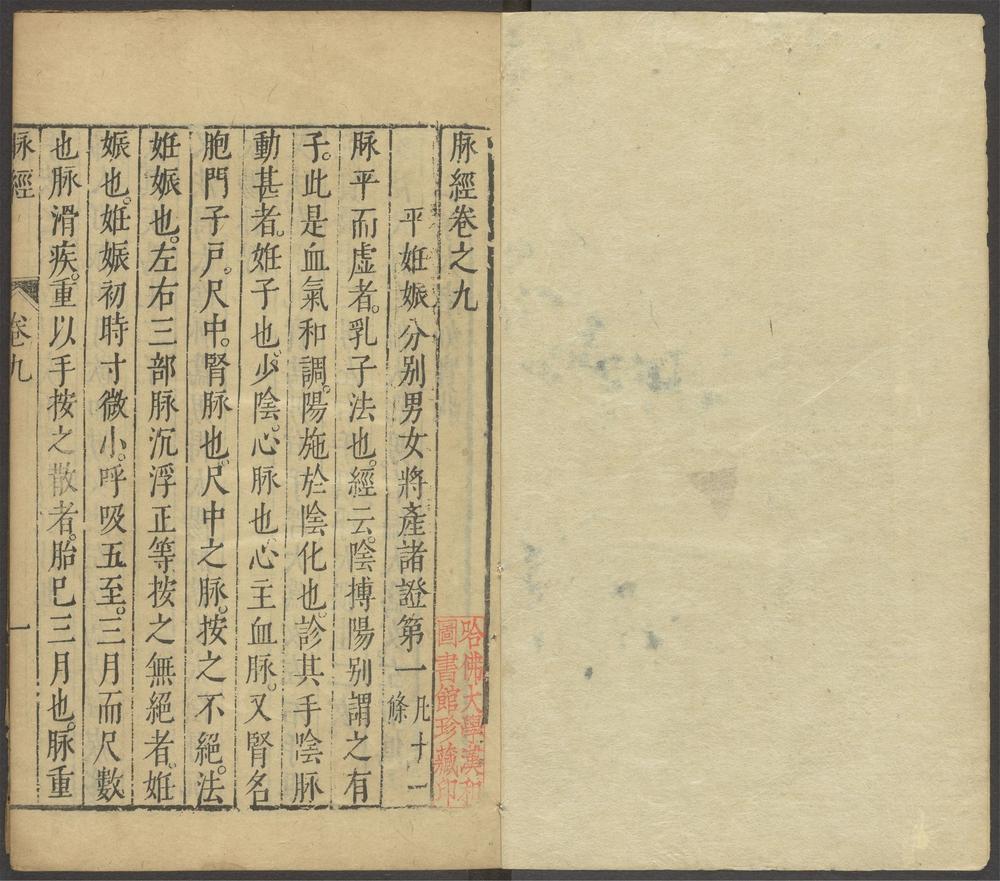 脉經卷之九
平妊娠分别男女將產諸證第一凡十一條
脉平而虛者。乳子法也。經云。陰摶陽别謂之有
子。此是血氣和調。陽施於陰化也。診其手陰脉
動甚者。妊子也。少陰。心脉也。心主血脉。又腎名
胞門子戸。尺中。腎脉也。尺中之脉。按之不絕。法
妊娠也。左右三部脉沉浮正等按之無絕者。妊
娠也。妊娠初時寸微小。呼吸五至。三月而尺數
也脉滑疾。重以手按之散者。胎巳三月也。脉重
脉經 卷九 一
哈佛大學漢和
圖書館珍藏印